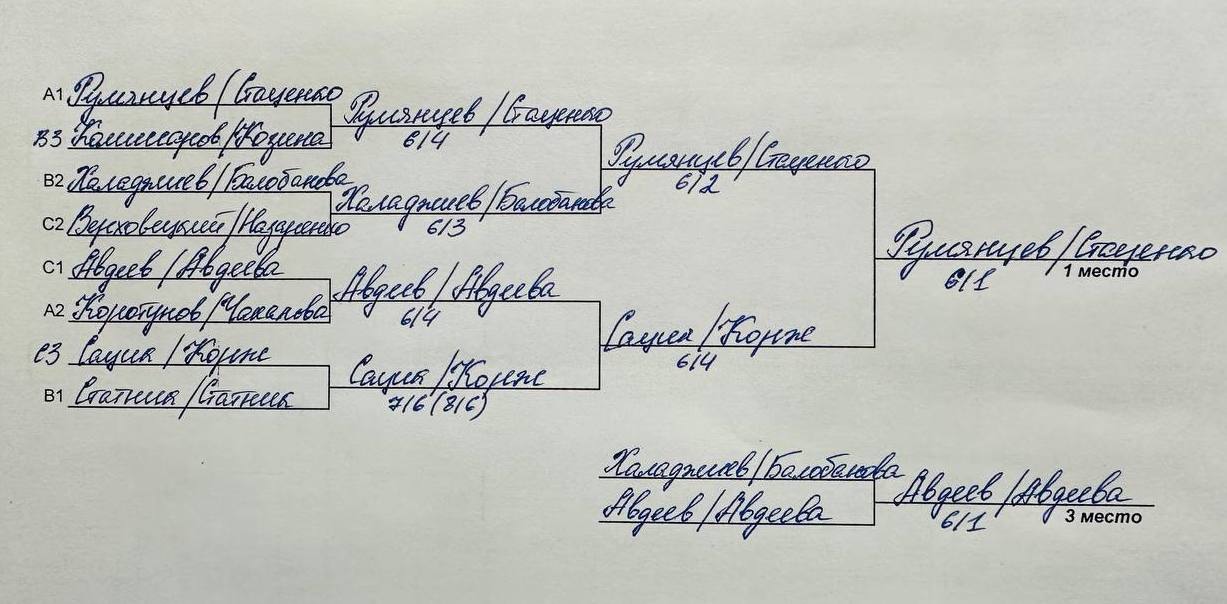 A1 Румянцев / Стаценко
B3 Комиссаров / Козина
B2 Халаджиев / Балобанова
C2 Верховецкий / Назаренко
C1 Авдеев / Авдеева
A2 Коротунов / Чакалова
C3 Сацик / Корж
B1 Статник / Статник
Румянцев / Стаценко
6/4
Халаджиев / Балобанова
6/3
Авдеев / Авдеева
6/4
Сацик / Корж
7/6 (8/6)
Румянцев / Стаценко
6/2
Сацик / Корж
6/4
Румянцев / Стаценко
6/1 1 место
Халаджиев / Балобанова
Авдеев / Авдеева
Авдеев / Авдеева
6/1 3 место